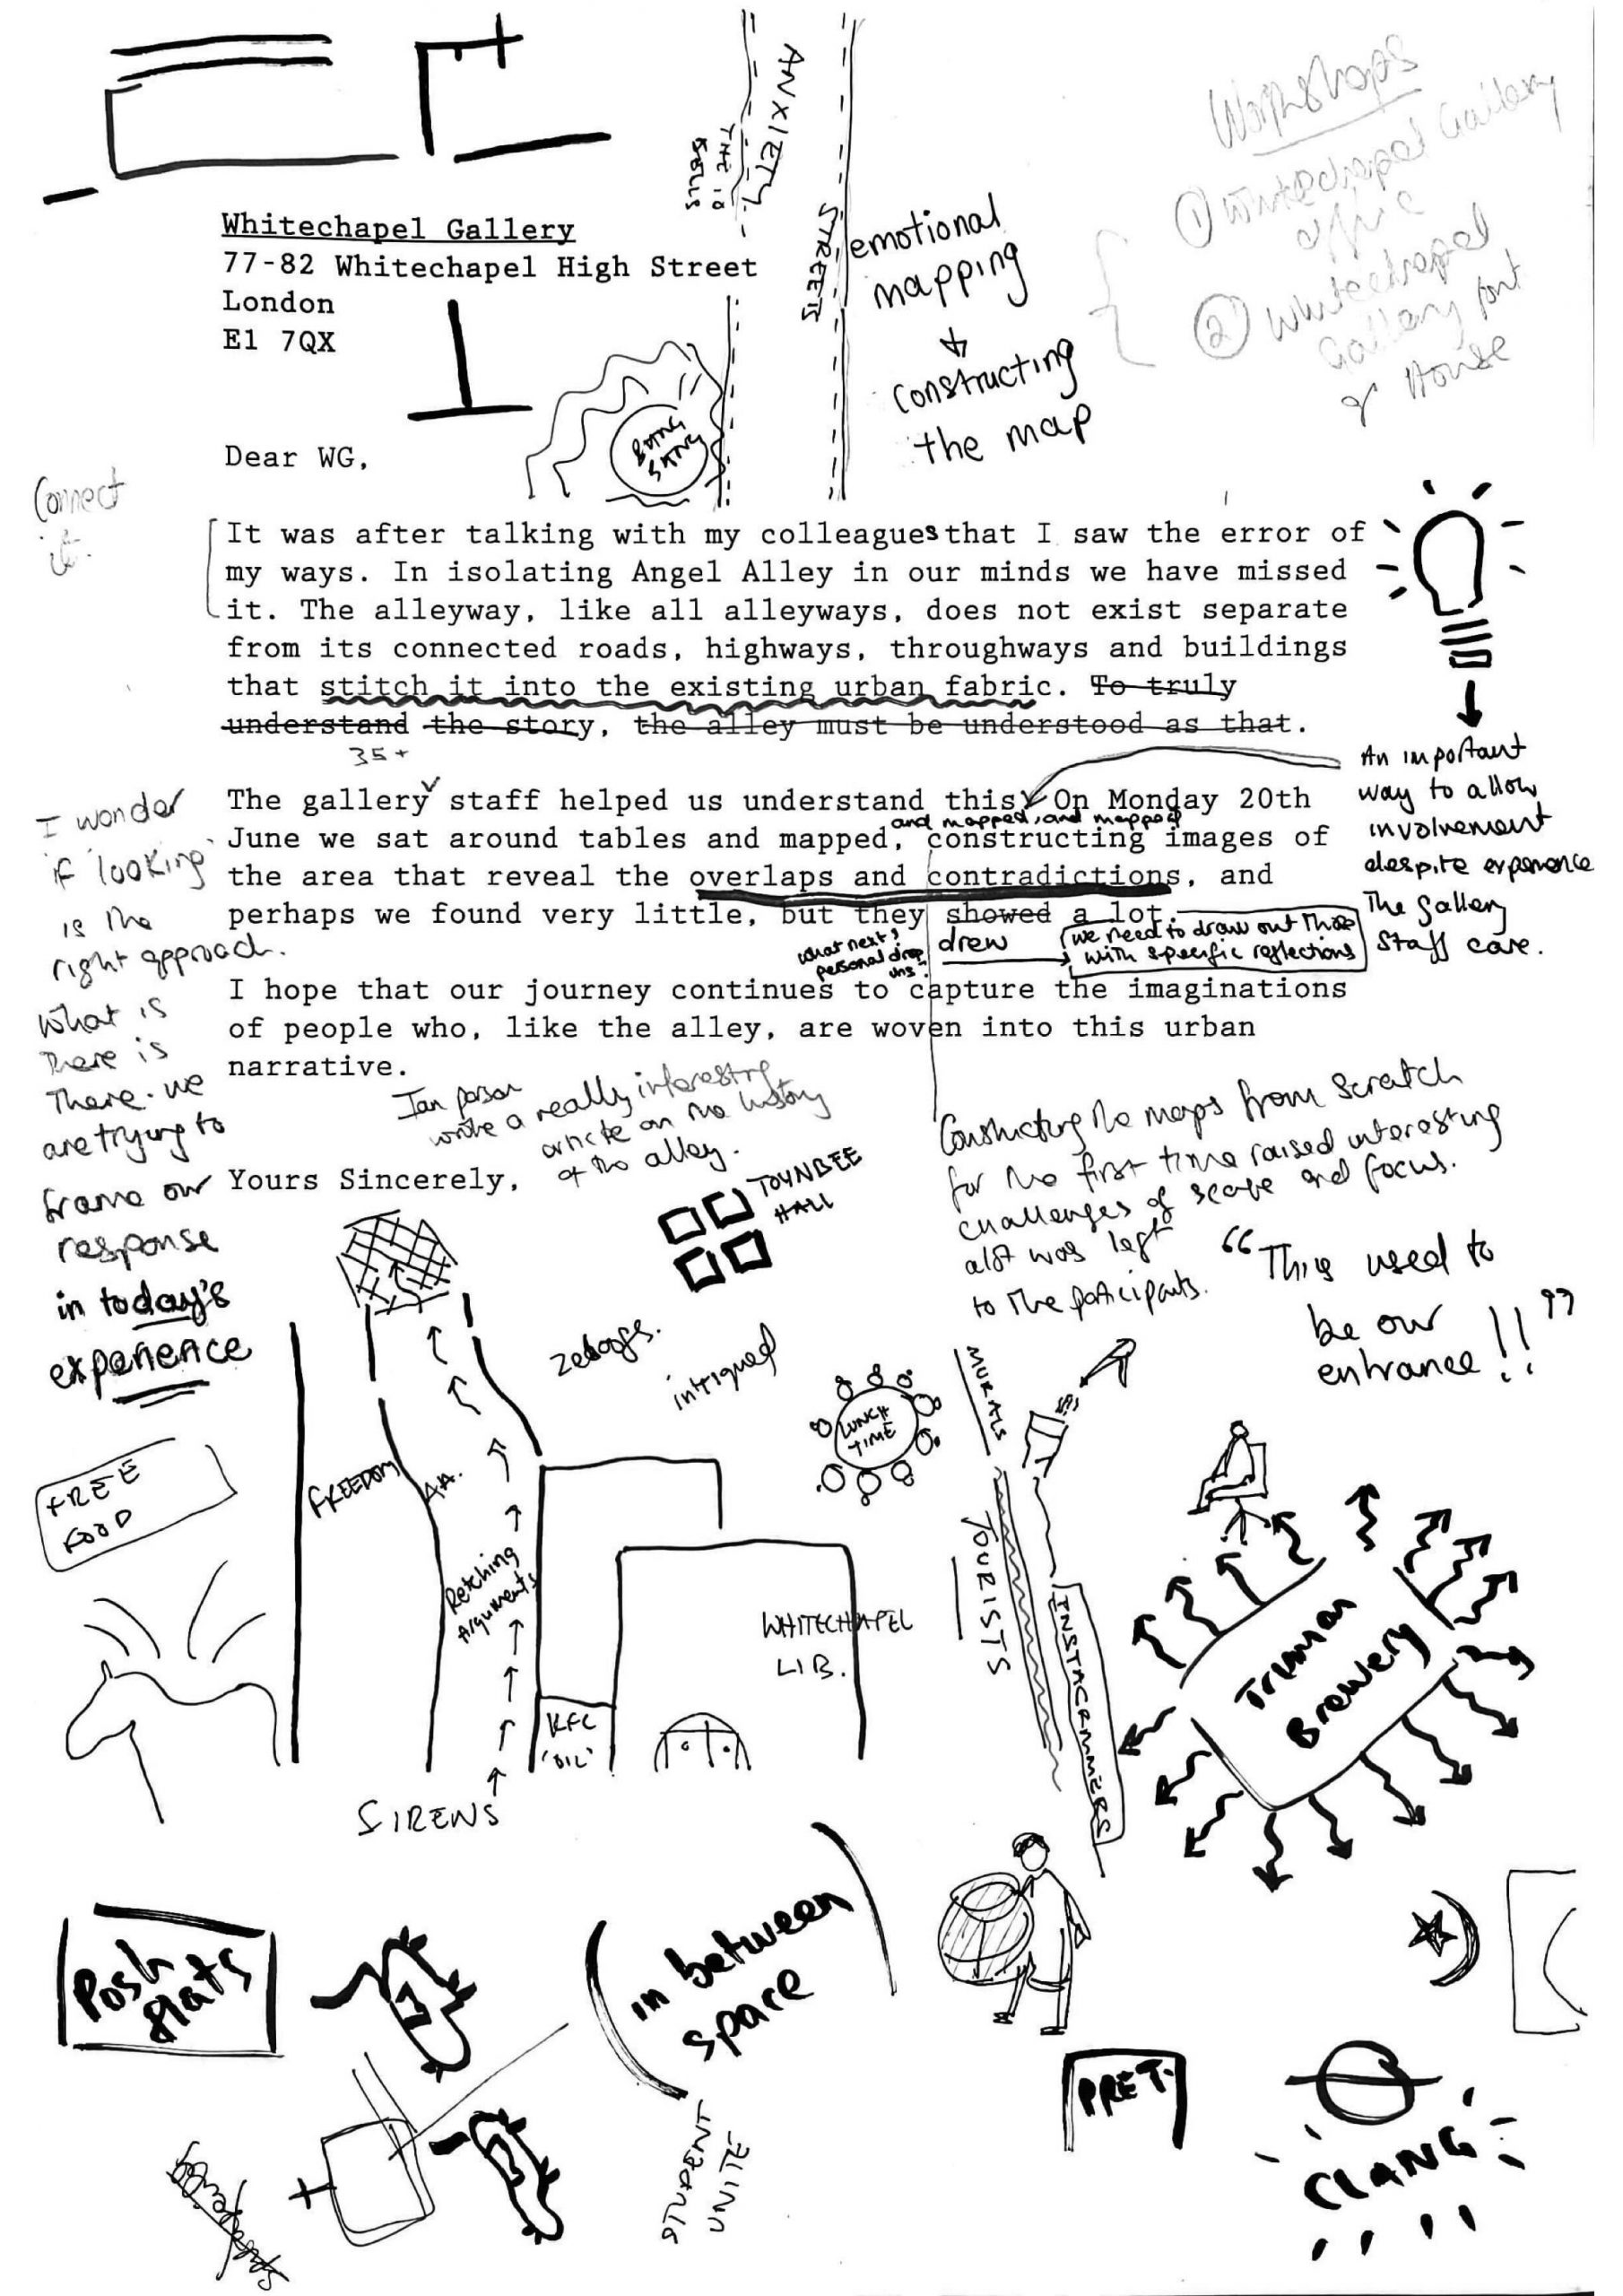 ANXIETY
THE 10
BELLS
STREETS
Workshops
① Whitechapel Gallery
② Whitechapel
Gallery
House
Whitechapel Gallery
77-82 Whitechapel High Street
London
E1 7QX
emotional
mapping
constructing
the map
Dear WG,
Connect
it.
It was after talking with my colleagues that I saw the error of
my ways. In isolating Angel Alley in our minds we have missed
it. The alleyway, like all alleyways, does not exist separate
from its connected roads, highways, throughways and buildings
that stitch it into the existing urban fabric. To truly
understand the story, the alley must be understood as that.
35+
The gallery staff helped us understand this. On Monday 20th
and mapped, and mapped
June we sat around tables and mapped, constructing images of
the area that reveal the overlaps and contradictions, and
perhaps we found very little, but they showed a lot.
drew
what next?
personal drop
ins?
we need to draw out these
with specific reflections
An important
way to allow
involvement
despite experience
The gallery
staff care.
I hope that our journey continues to capture the imaginations
of people who, like the alley, are woven into this urban
narrative.
I wonder
if 'looking'
is the
right approach.
What is
there is
there. we
are trying to
frame our
response
in today's
experience
Ian
wrote a really interesting
article on the history
of the alley.
Yours Sincerely,
Constructing the maps from scratch
for the first time raised interesting
challenges of scope and focus.
alot was left
to the participants.
"This used to
be our
entrance!!"
TOYNBEE
HALL
intrigued
LUNCH
TIME
MURALS
TOURISTS
INSTAGRAMMERS
FREE
FOOD
FREEDOM
A.A.
Retching
Arguments
WHITECHAPEL
LIB.
KFC
'OIL'
SIRENS
Truman
Brewery
Posh
flats
in between
space
STUDENT
UNITE
PRET.
CLANG